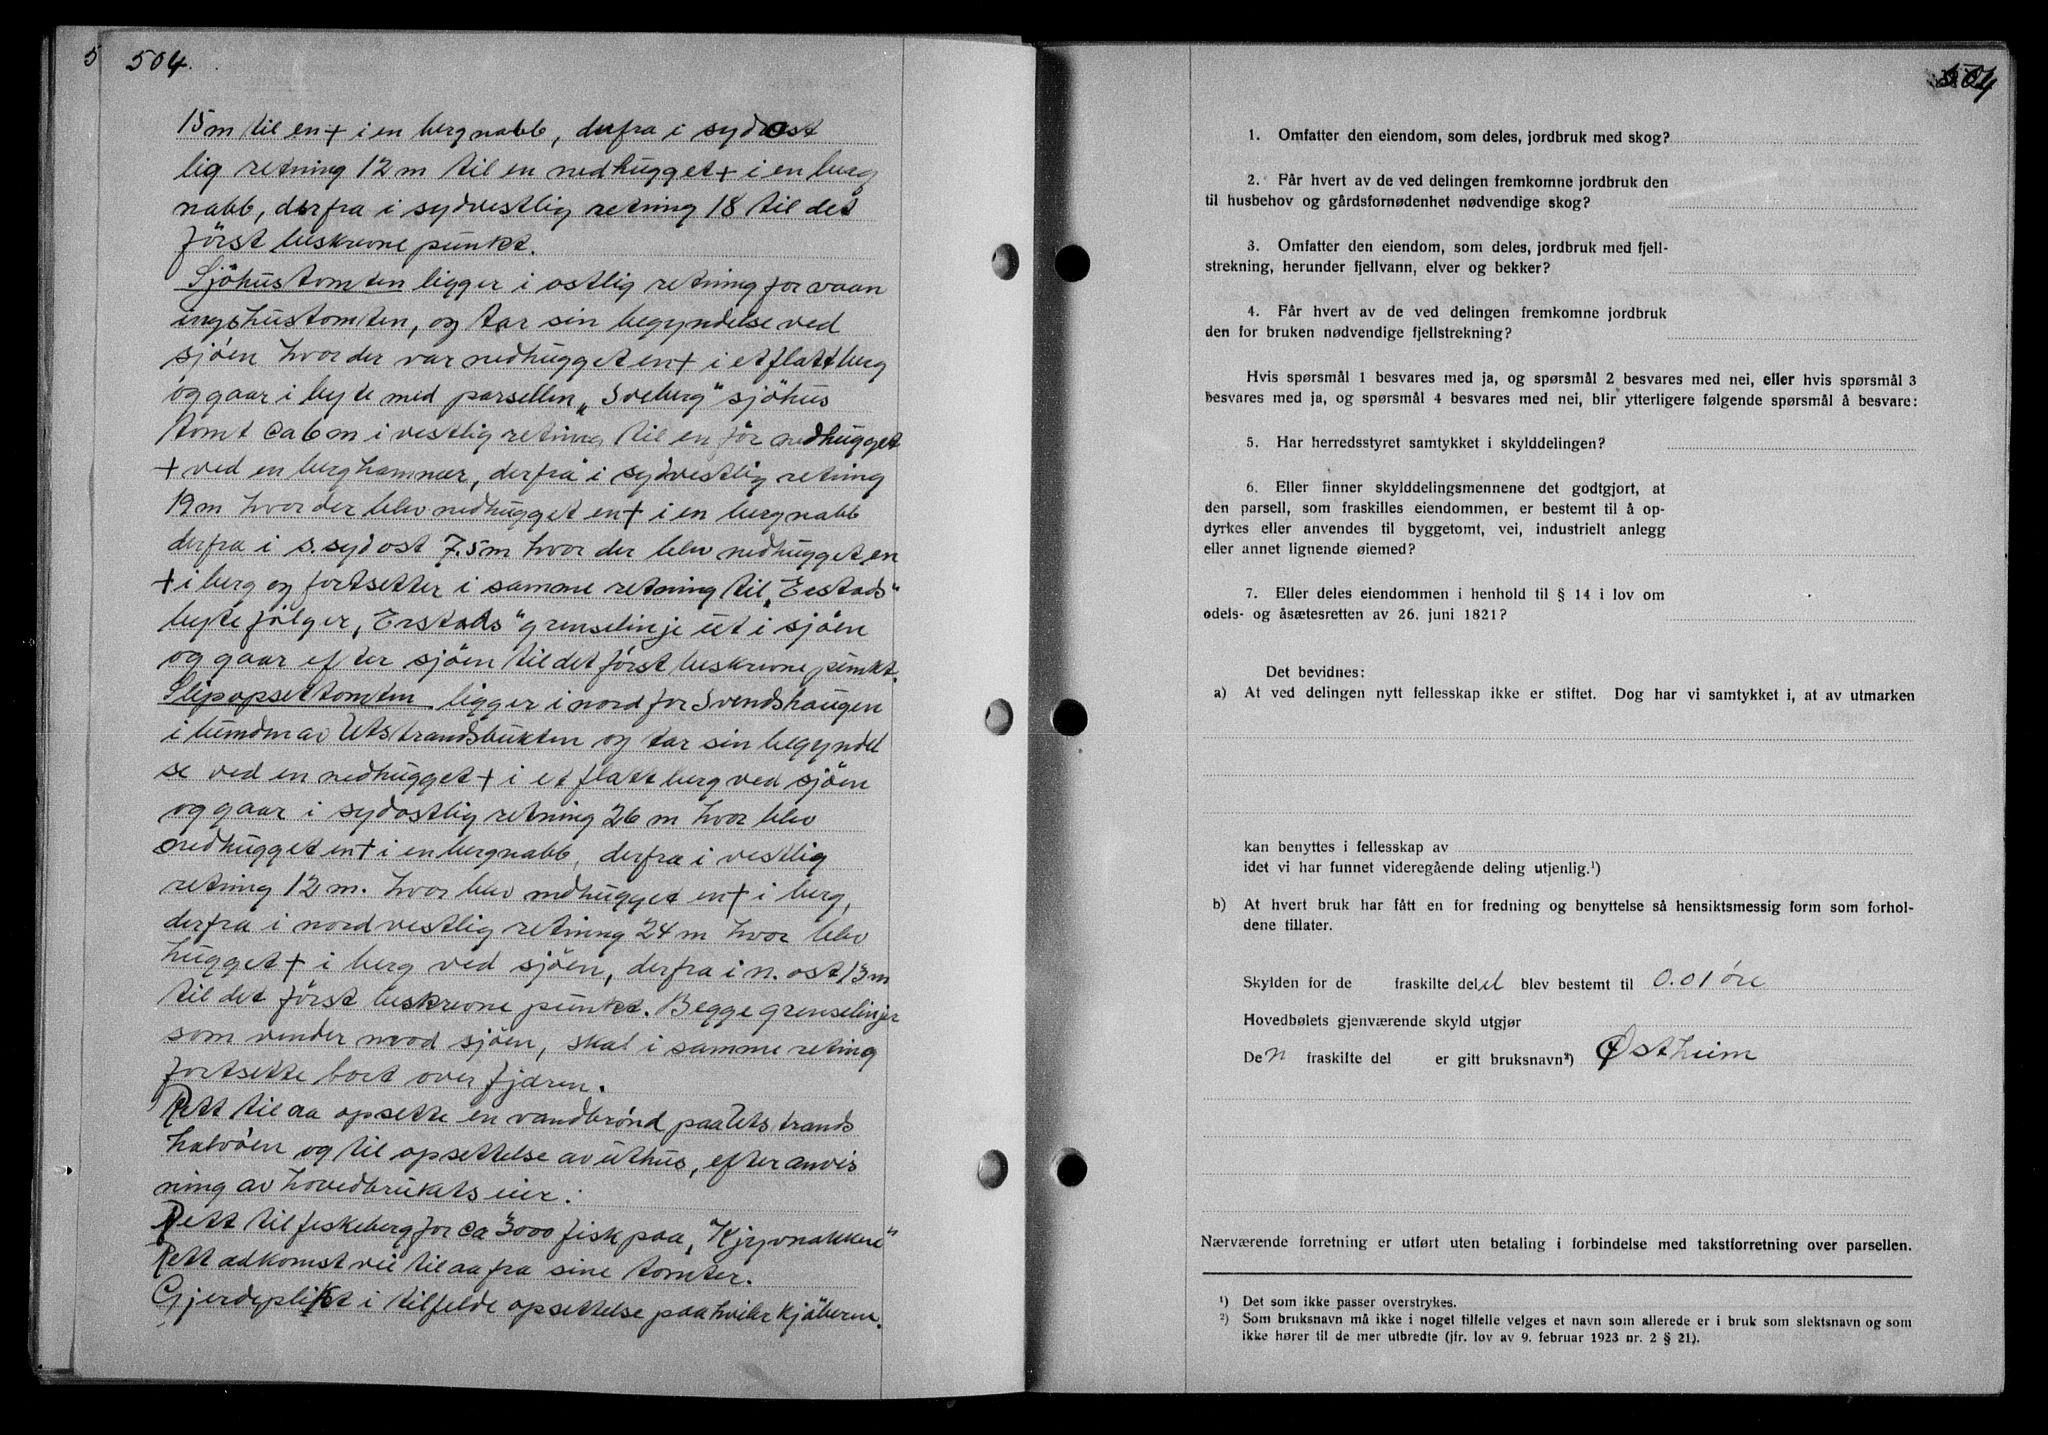 5 504.
15m til en + i en bergnabb, derfra i sydost
lig retning 12 m til en nedhugget + i en berg
nabb, derfra i sydvestlig retning 18 til det
först beskrevne punkt.
Sjöhustomten ligger i ostlig retning for vaan
ingshustomten, og tar sin begyndelse ved
sjöen hvor der var nedhugget en + i et flatt berg
og gaar i byte med parsellen „Sveberg" sjöhus
tomt ca 6 m i vestlig retning til en för nedhugget
+ ved en berghammer, derfra i sydvestlig retning
19m hvor der blev nedhugget en + i en bergnabb
derfra i s.sydost 7.5m hvor der blev nedhugget en
+ i berg og fortsetter i samme retning til „Erstads"
byte følger „Erstads" grenselinje ut i sjöen
og gaar efter sjöen til det först beskrevne punkt.
Slipopsettomten ligger i nord for Svendshaugen
i bunden av Utstrandsbukten og tar sin begyndel
se ved en nedhugget + i et flatt berg ved sjöen
og gaar i sydostlig retning 26 m hvor blev
nedhugget en + i en bergnabb, derfra i vestlig
retning 12 m. hvor blev nedhugget en + i berg,
derfra i nordvestlig retning 24 m hvor blev
hugget + i berg ved sjöen, derfra i n. ost 13m
til det först beskrevne punkt. Begge grenselinjer
som vender mod sjöen, skal i samme retning
fortsette bort over fjæren.
Rett til aa opsette en vandbrönd paa Utstrands
halvöen og til opsettelse av uthus, efter anvis
ning av hovedbrukets eier.
Rett til fiskeberg for ca 3000 fisk paa „Kjrpnakken"
Rett adkomst vei til aa fra sine tomter.
Gjerdeplikt i tilfelde opsettelse paa hviler kjöberen.
504
1. Omfatter den eiendom, som deles, jordbruk med skog?
2. Får hvert av de ved delingen fremkomne jordbruk den
til husbehov og gårdsfornødenhet nødvendige skog?
3. Omfatter den eiendom, som deles, jordbruk med fjell-
strekning, herunder fjellvann, elver og bekker?
4. Får hvert av de ved delingen fremkomne jordbruk
den for bruken nødvendige fjellstrekning?
Hvis spørsmål 1 besvares med ja, og spørsmål 2 besvares med nei, eller hvis spørsmål 3
besvares med ja, og spørsmål 4 besvares med nei, blir ytterligere følgende spørsmål å besvare:
5. Har herredsstyret samtykket i skylddelingen?
6. Eller finner skylddelingsmennene det godtgjort, at
den parsell, som fraskilles eiendommen, er bestemt til å op-
dyrkes eller anvendes til byggetomt, vei, industrielt anlegg
eller annet lignende øiemed?
7. Eller deles eiendommen i henhold til § 14 i lov om
odels- og åsætesretten av 26. juni 1821?
Det bevidnes:
a) At ved delingen nytt fellesskap ikke er stiftet. Dog har vi samtykket i, at av utmarken
kan benyttes i fellesskap av
idet vi har funnet videregående deling utjenlig.¹)
b) At hvert bruk har fått en for fredning og benyttelse så hensiktsmessig form som forhol-
dene tillater.
Skylden for de fraskilte delel blev bestemt til 0.01 øre
Hovedbølets gjenværende skyld utgjør
Den fraskilte del er gitt bruksnavn²) Østheim
Nærværende forretning er utført uten betaling i forbindelse med takstforretning over parsellen.
¹) Det som ikke passer overstrykes.
²) Som bruksnavn må ikke i noget tilfelle velges et navn som allerede er i bruk som slektsnavn og som
ikke hører til de mer utbredte (jfr. lov av 9. februar 1923 nr. 2 § 21).